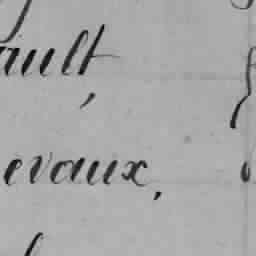 ault,
evaux,